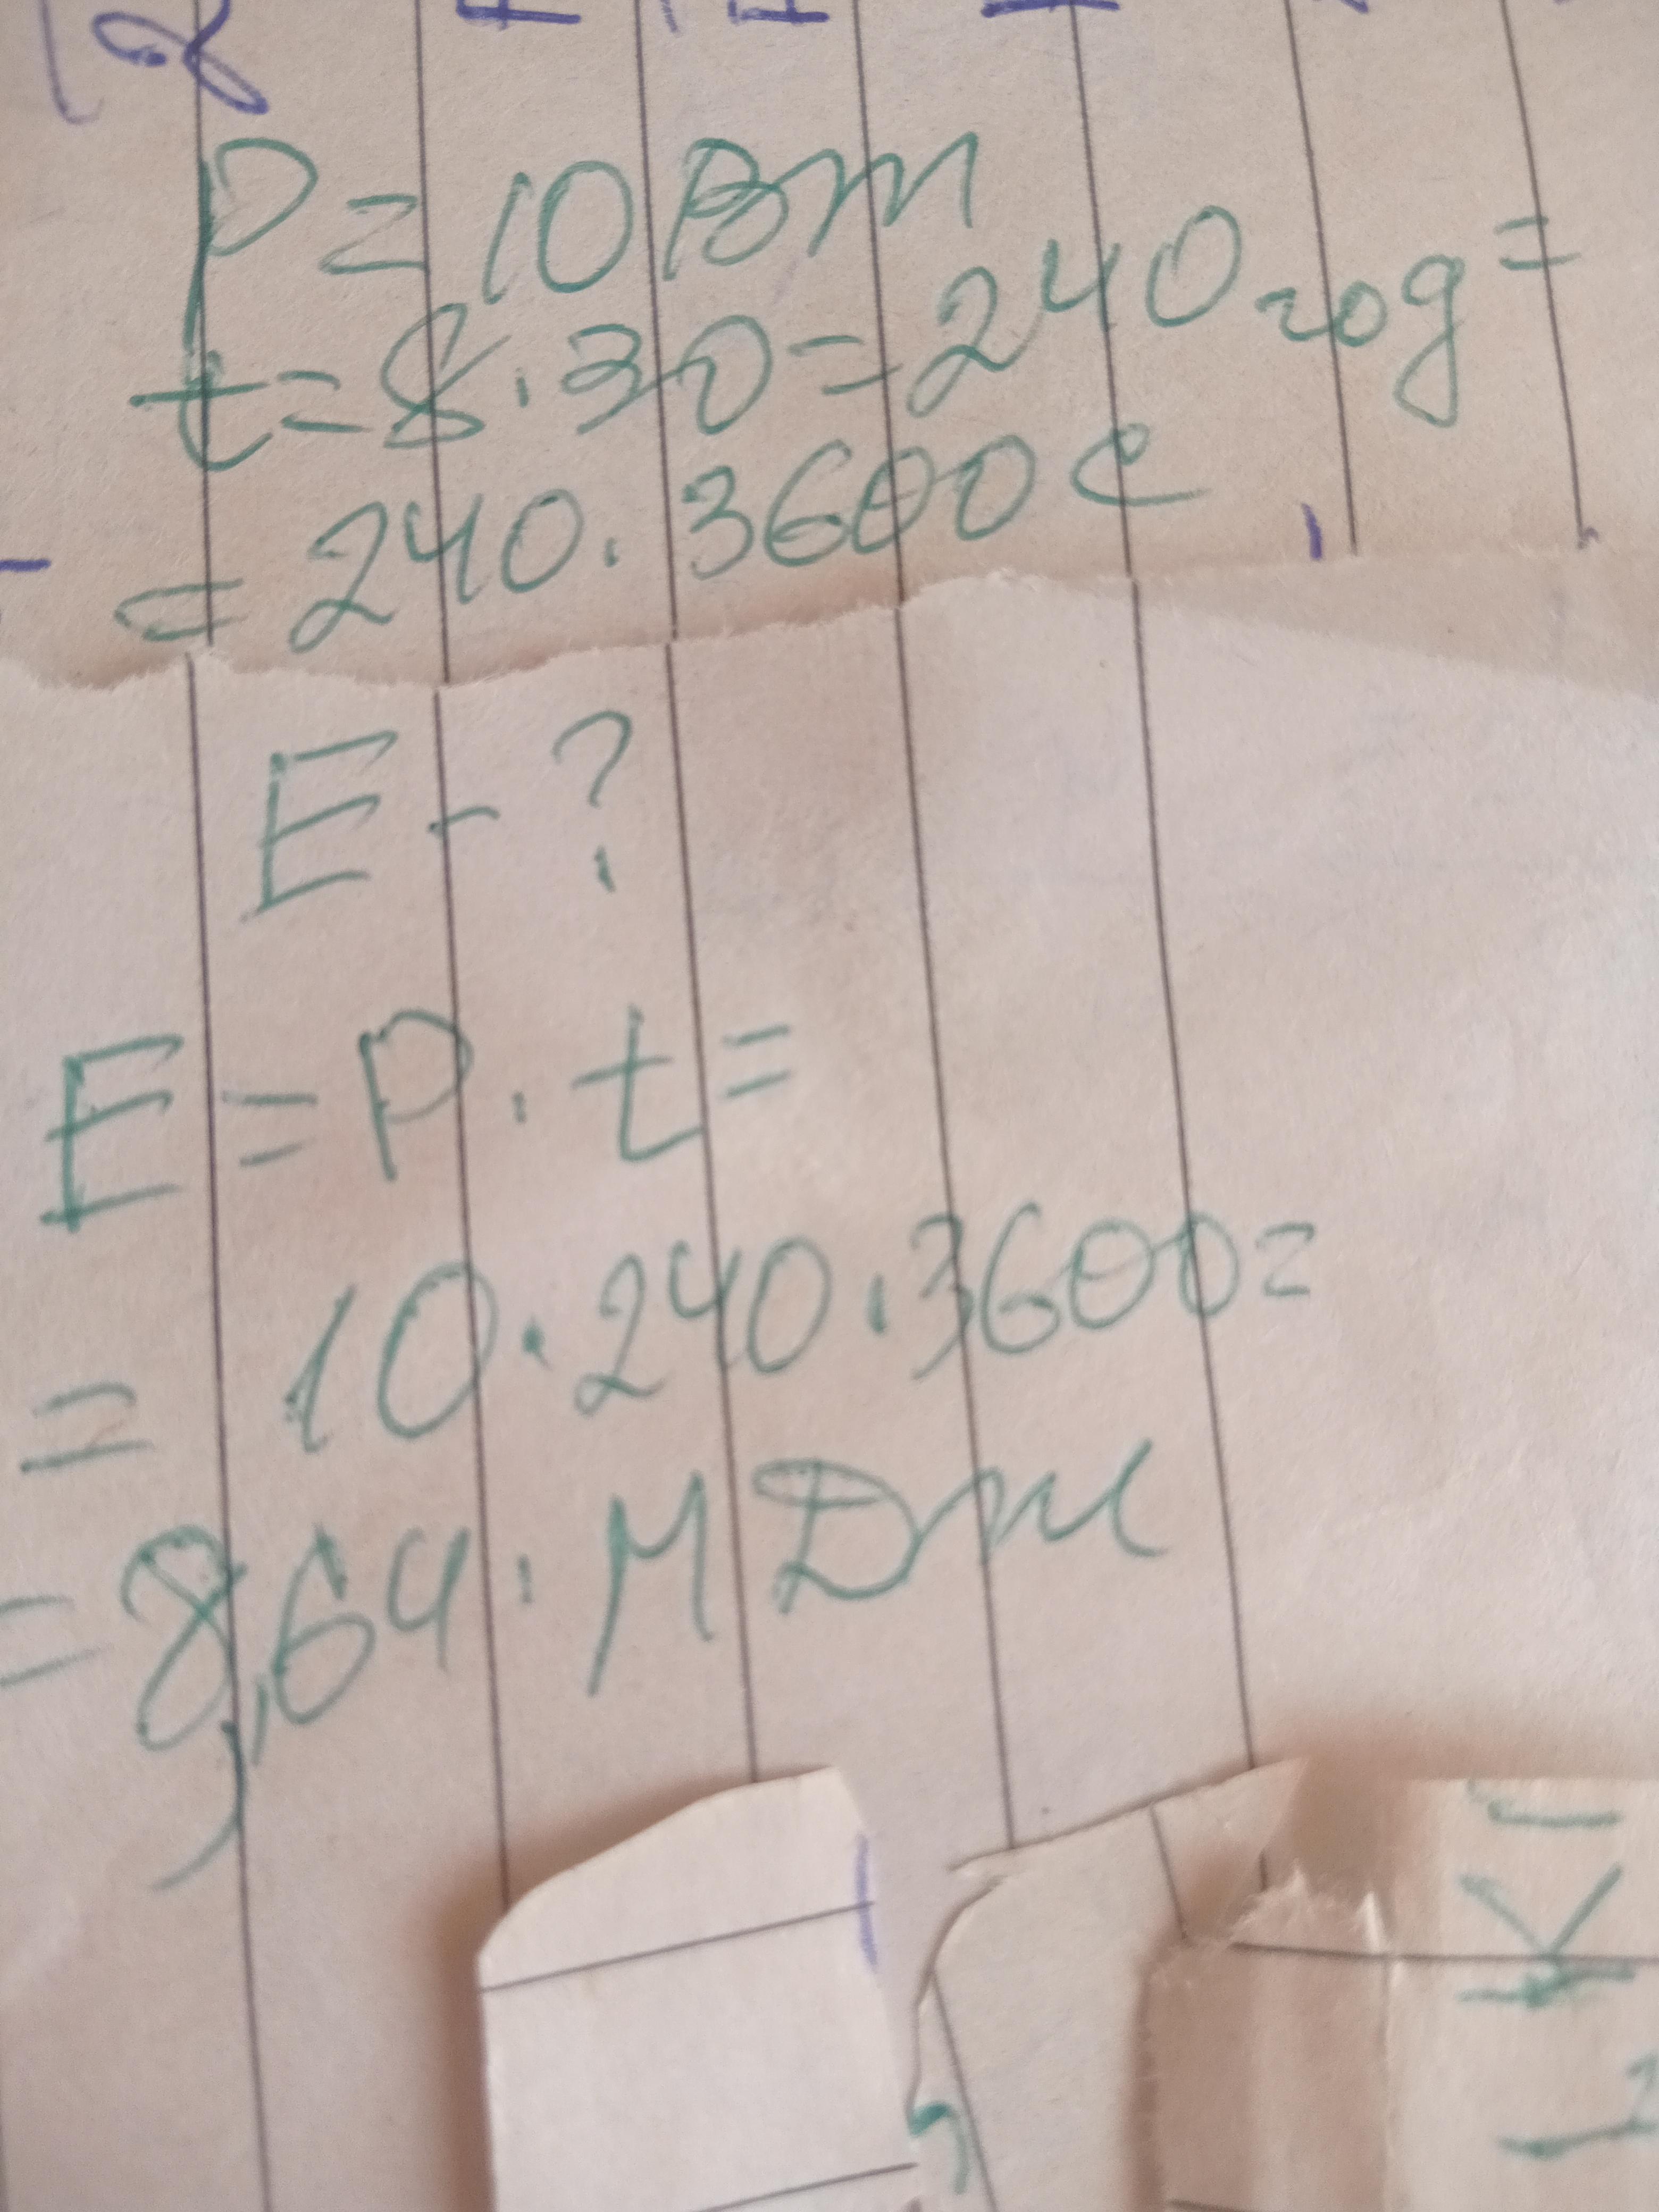 P = 10 Вт
t = 8 · 30 = 240 год =
= 240 · 3600 с
E - ?
E = P · t =
= 10 · 240 · 3600 =
= 8,64 · МДж